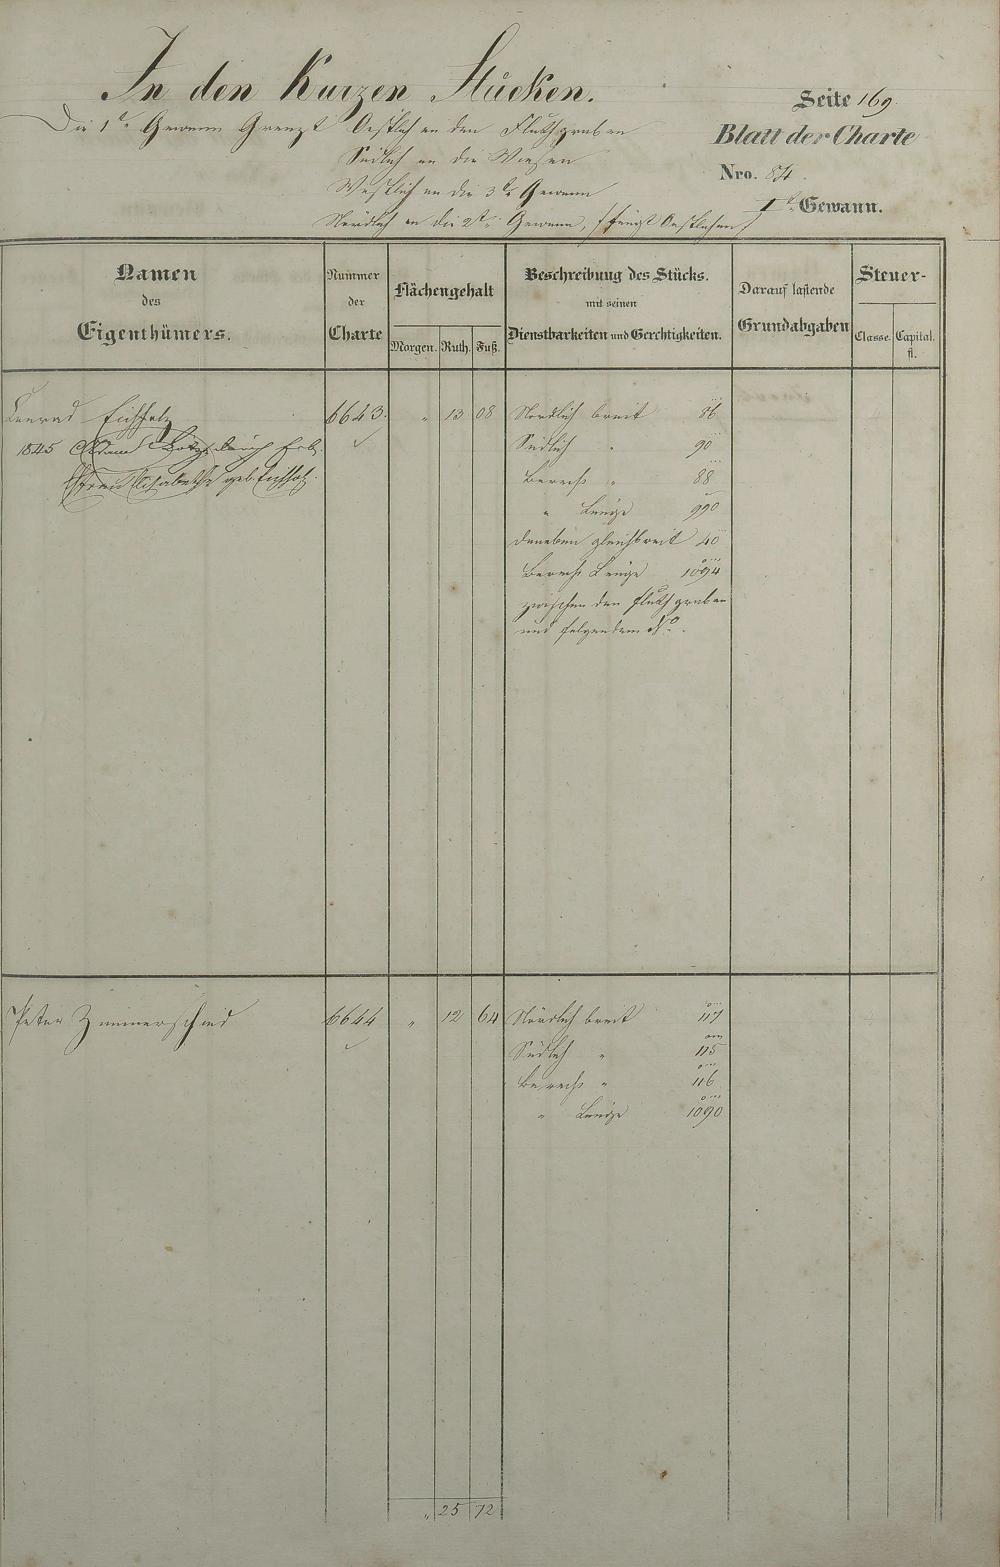 In den Kurzen Stücken.
Seite 169.
Die 1te Gewann Grenzt Oestlich an den Fluthgraben
Blatt der Charte
Südlich an die Wiesen
Nro. 84.
Westlich an die 3te Gewann
Nördlich an die 2te Gewann, /: fängt Oestlich an :/
Ite Gewann.
Namen
des
Eigenthümers.
Nummer
der
Charte
Flächengehalt
Morgen. Ruth. Fuß.
Beschreibung des Stücks.
mit seinen
Dienstbarkeiten und Gerechtigkeiten.
Darauf lastende
Grundabgaben
Steuer-
Classe. Capital.
fl.
Conrad Eichholz 6643. " 13 08 Nördlich breit 86
1845 Adam durch Erb. Südlich " 90
Ehefrau Elisabetha geb. Eichholz. Berech " 88
" Länge 990
daneben gleichbreit 40
Berech Länge 1094
zwischen den Fluthgraben
und folgendem No.
Peter Zimmerschied 6644 " 12 64 Nördlich breit 117
Südlich " 115
Berech " 116
" Länge 1090
" 25 72